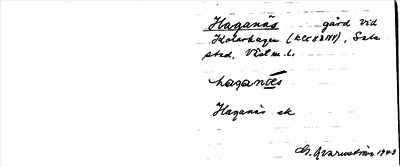 Haganäs gård vid
Kolarhagen (       ), Sala
stad, Vstm. l.
haganä̀s
Haganäs ek
G. Qvarnström 1943